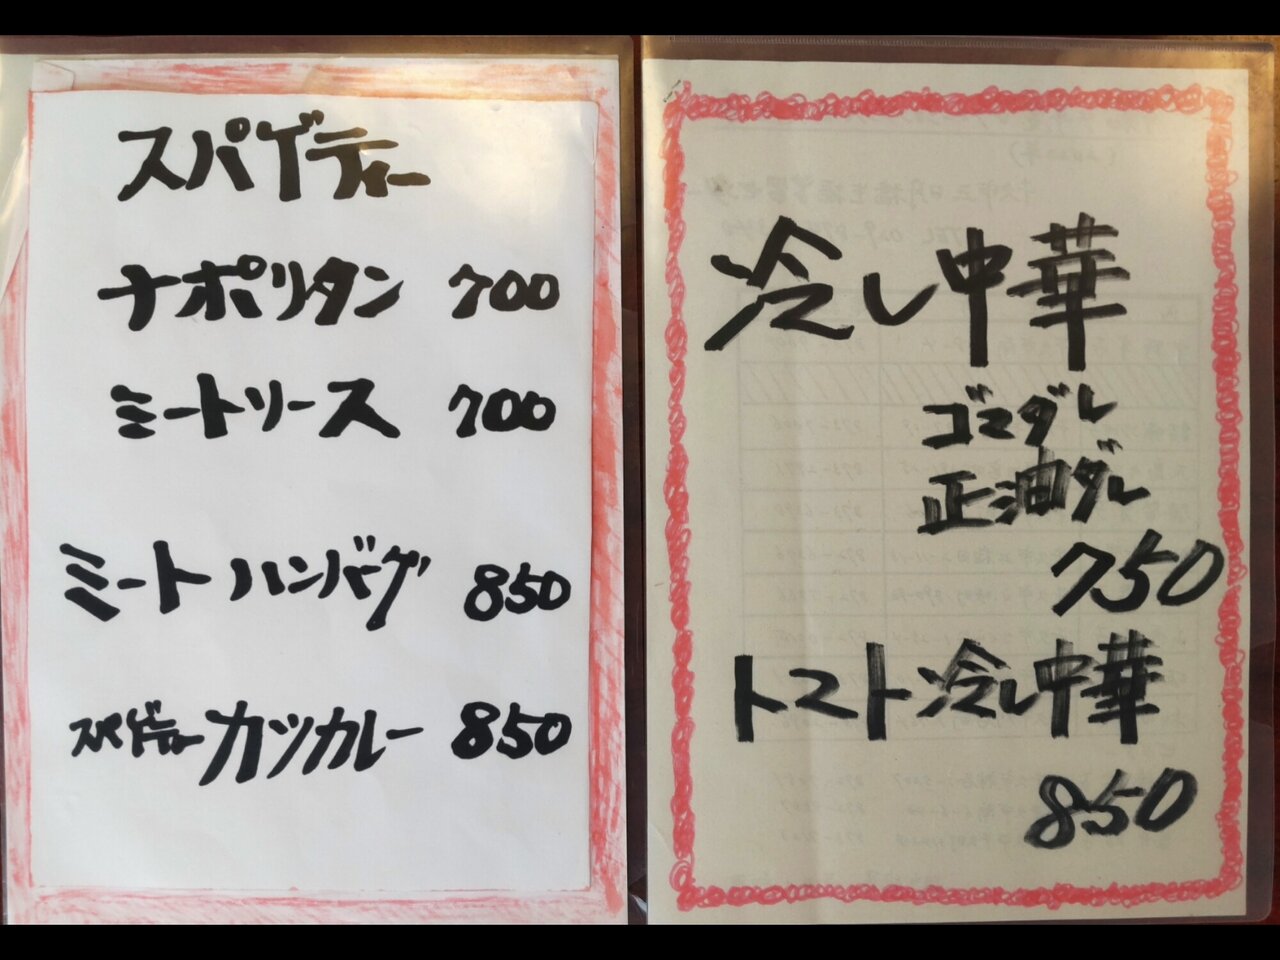 スパゲティー
ナポリタン 700
ミートソース 700
ミートハンバーグ 850
スパゲティーカツカレー 850
冷し中華
ゴマダレ
正油ダレ
750
トマト冷し中華
850